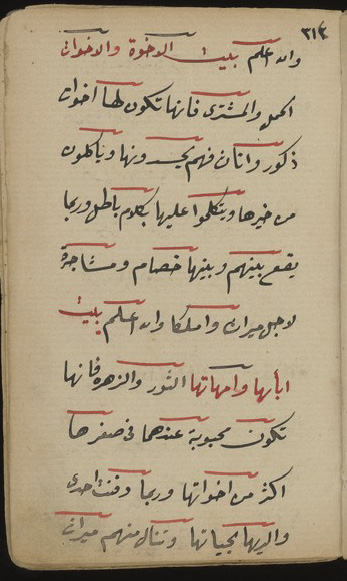 ٣١٤
والله اعلم بيت الاخوة والاخوات
الحمل والمشترى فانها تكون لها اخوات
ذكور واناث فهم يحسدونها وياكلون
من خيرها ويتكلموا عليها بكلام باطل وربما
يقع بينهم وبينها خصام ومشاجرة
لاجل ميراث واملاكا والله اعلم بيت
ابأيها وامهاتها الثور والزهره فانها
تكون محبوبة عندهما فى صغرها
اكثر من اخواتها وربما دفنت احدى
والديها بحياتها وتنال منهم ميراث